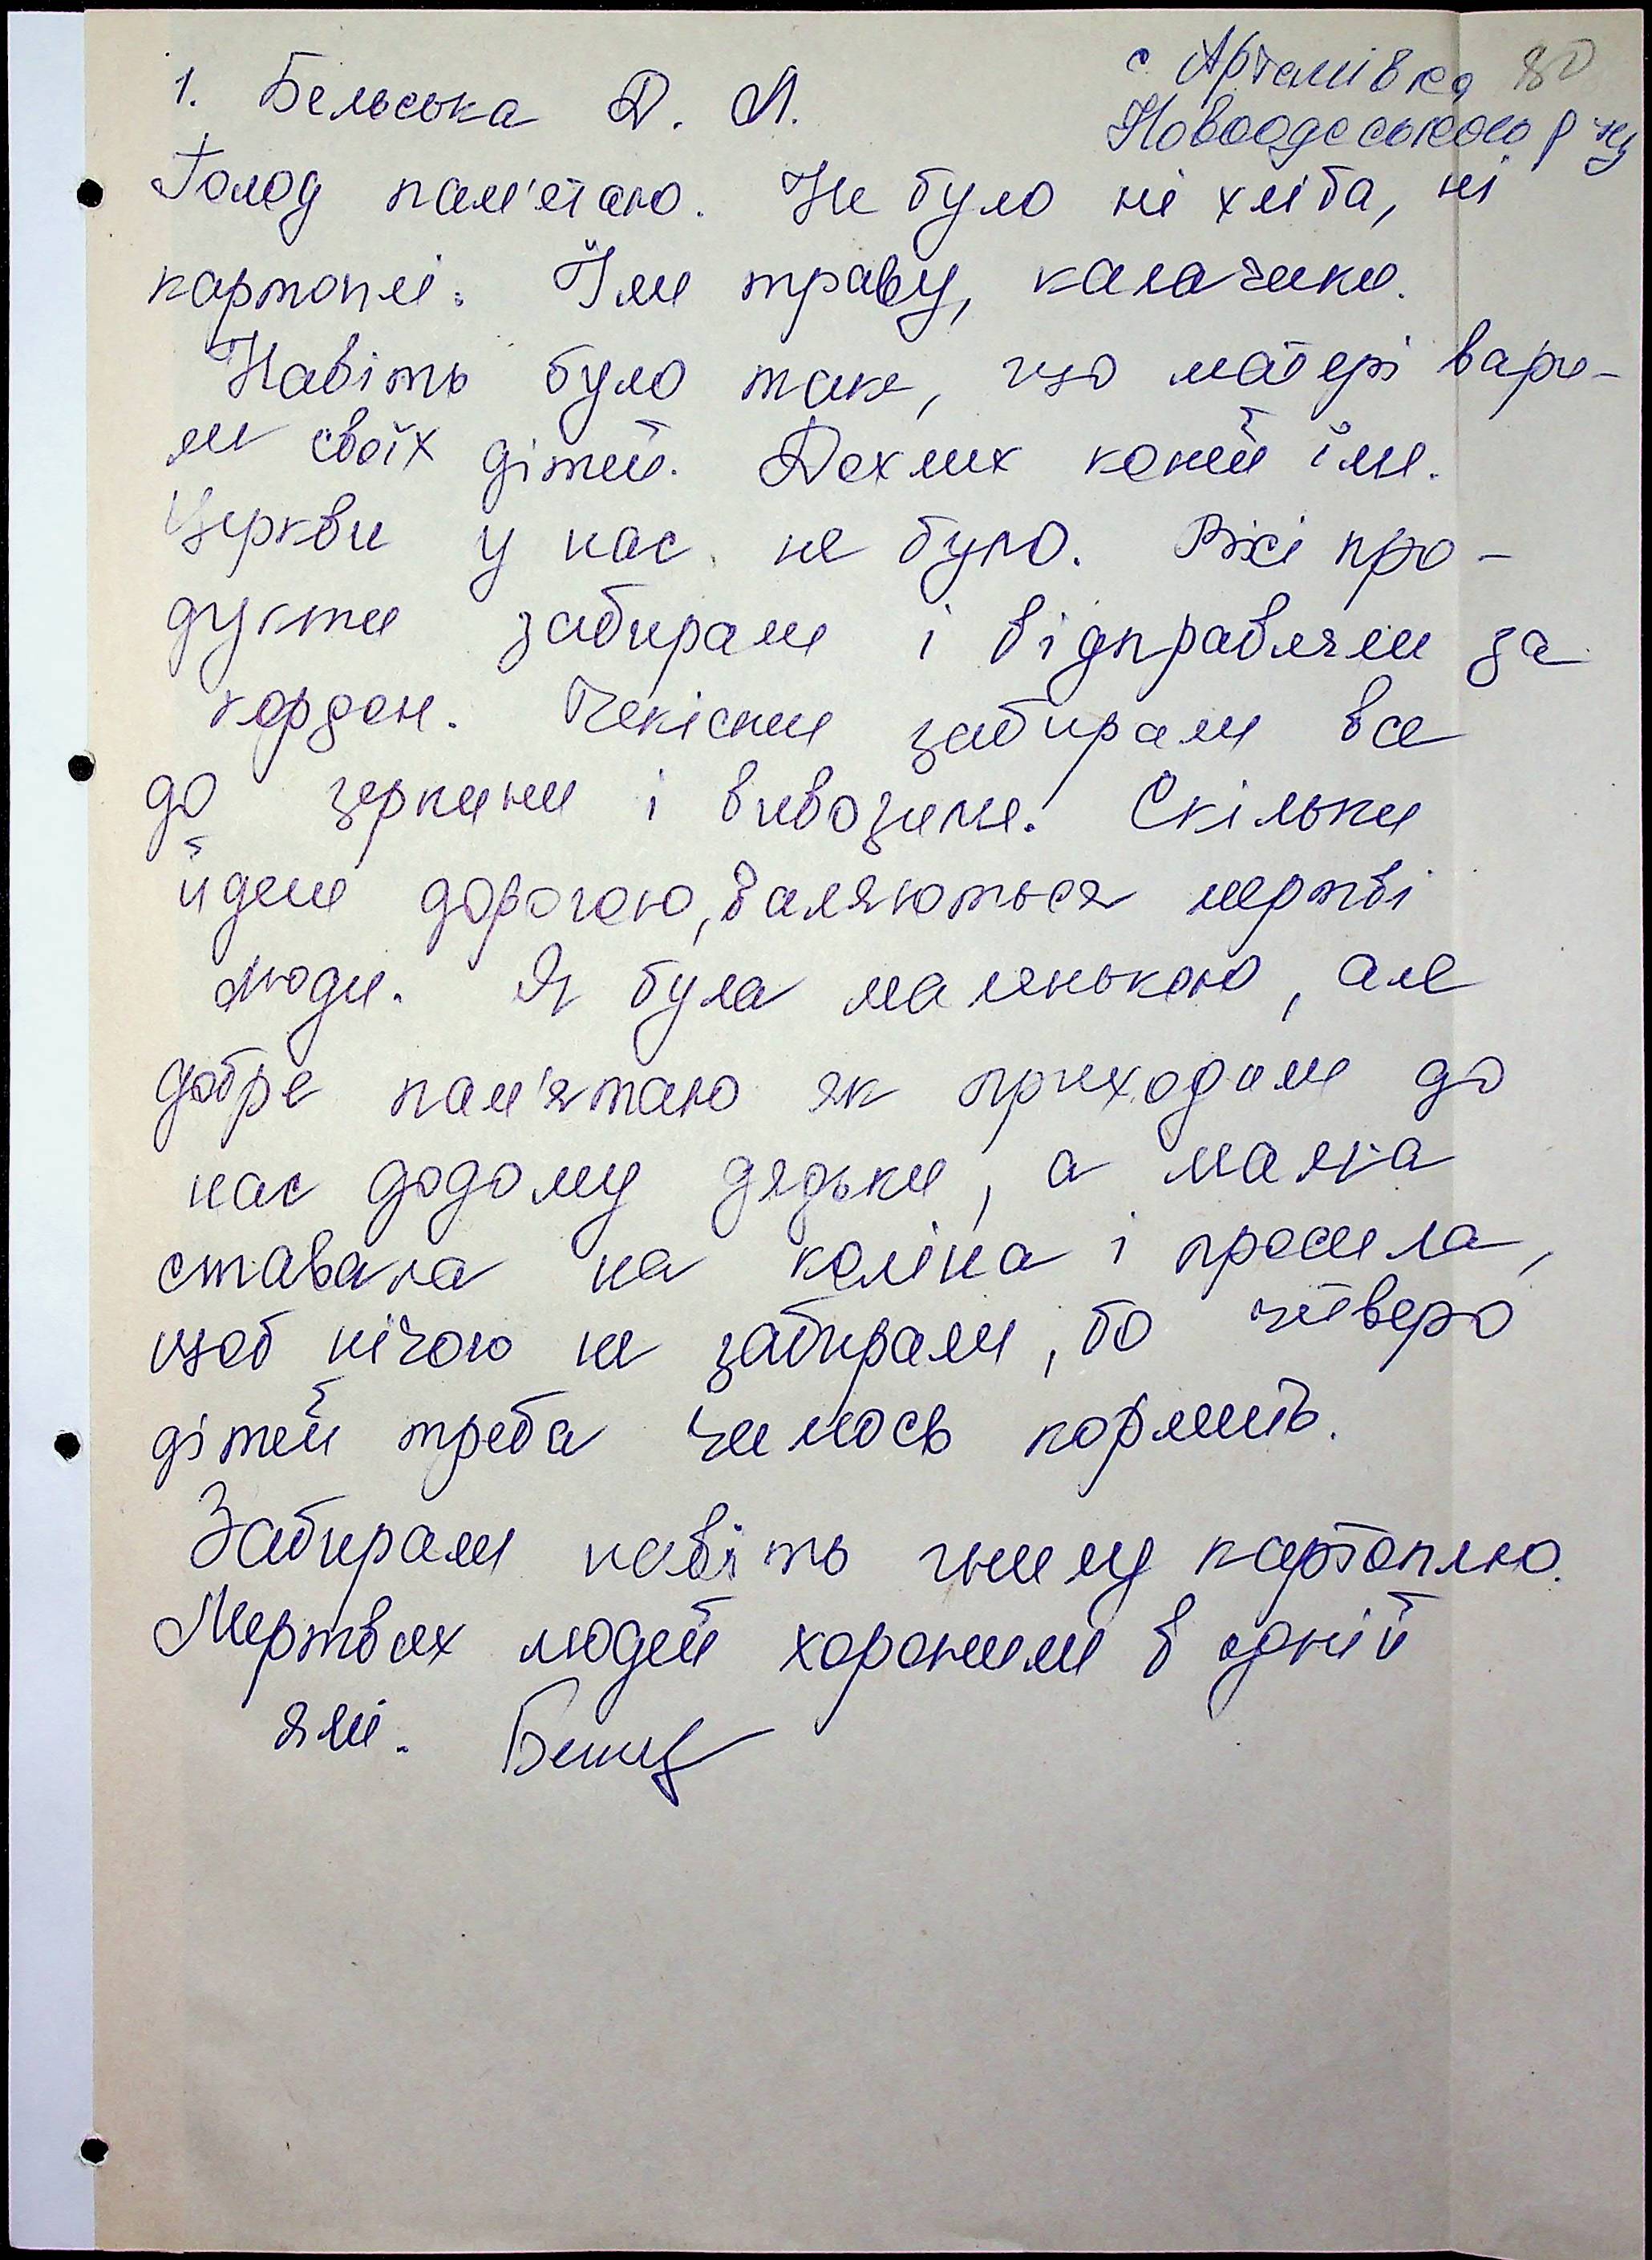 с. Артемівка 80
Новоодеського р-ну
1. Більська Д. Л.
Голод пам'ятаю. Не було ні хліба, ні
картоплі. Їли траву, калачики.
Навіть було таке, що матері вари-
ли своїх дітей. Дохлих коней їли.
Церкви у нас не було. Всі про-
дукти забирали і відправляли за
кордон. Чекісти забирали все
до зернини і вивозили. Скільки
йдеш дорогою, валяються мертві
люди. Я була маленькою, але
добре пам'ятаю як приходили до
нас додому дядьки, а мама
ставала на коліна і просила,
щоб нічого не забирали, бо четверо
дітей треба чимось кормить.
Забирали навіть гнилу картоплю.
Мертвих людей хоронили в одній
ямі.